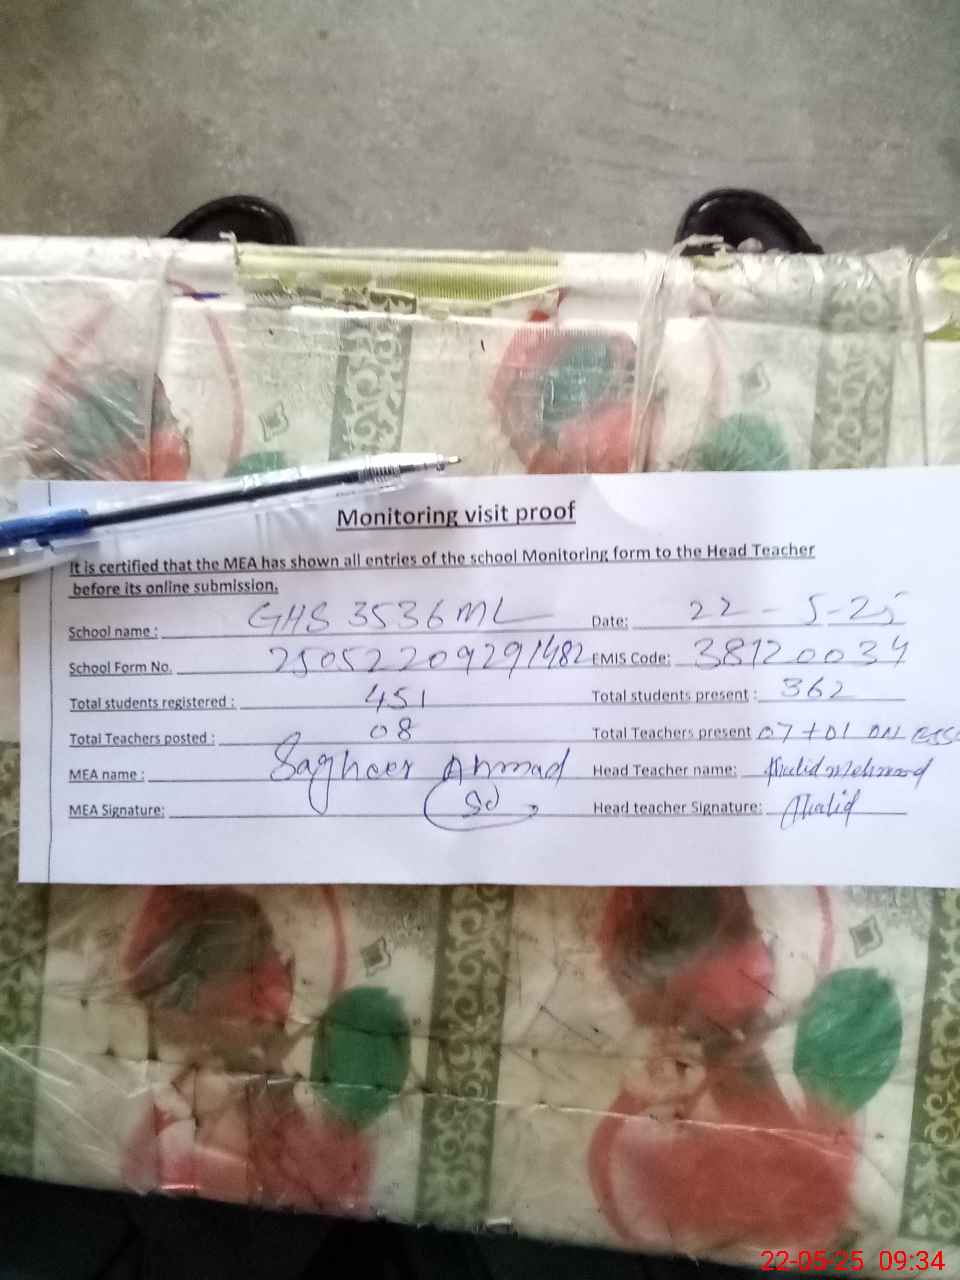 Monitoring visit proof
It is certified that the MEA has shown all entries of the school Monitoring form to the Head Teacher
before its online submission.
School name : GHS 3536ML Date: 22-5-25
School Form No. 250522209291482 EMIS Code: 38120034
Total students registered : 451 Total students present : 362
Total Teachers posted : 08 Total Teachers present 07+01 on
MEA name : Sagheer Ahmad Head Teacher name: Khalid Mehmood
MEA Signature: Sd Head teacher Signature: Khalid
22-05-25 09:34